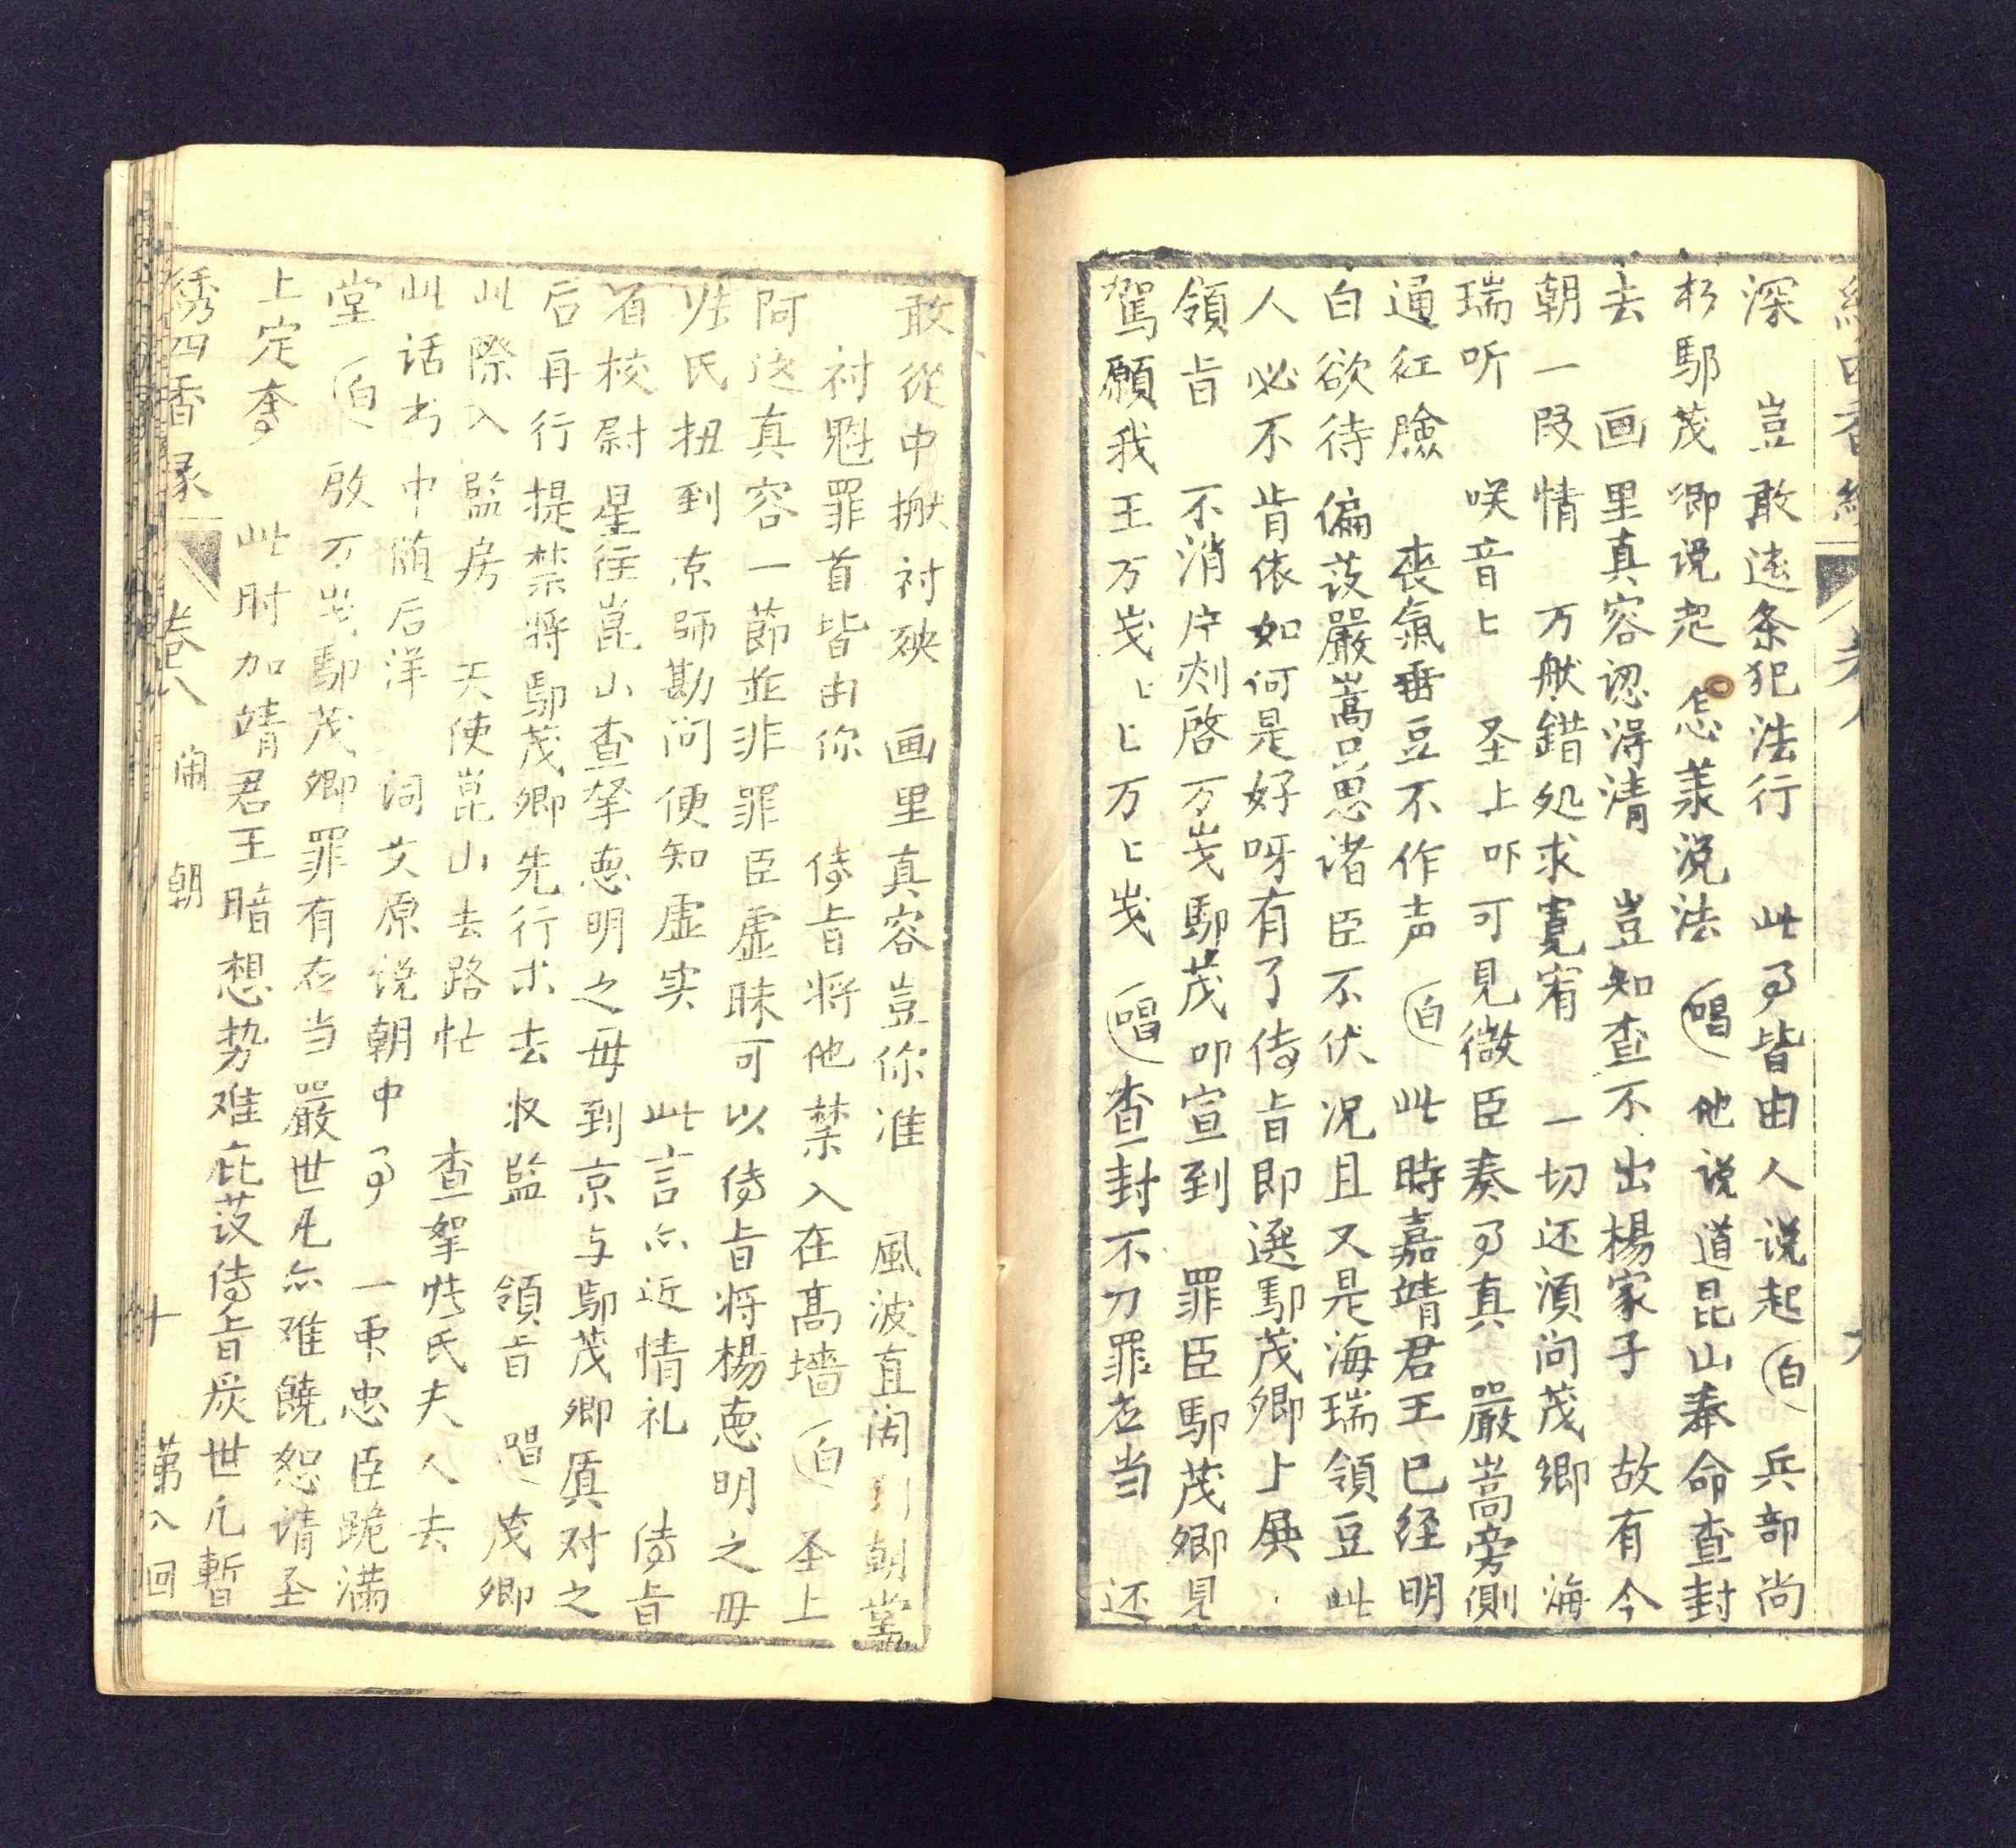 深　豈敢违条犯法行　此𠄏皆由人说起　白　兵部尚
杉鄢茂卿说起　怎羕説法　唱　他说道昆山奉命查封
去　画里真容认得清　豈知查不出楊家子　故有今
朝一段情　万般錯処求寬宥　一切还須问茂卿　海
瑞听　咲音匕　圣上吓可見微臣奏𠄏真　嚴嵩旁側
通红臉　丧氣垂豆不作声　白　此時嘉靖君王已经明
白欲待偏𧦬嚴嵩只思诸臣不伏况且又是海瑞領豆此
人必不肯依如何是好呀有了侍旨即選鄢茂卿上殿
領旨　不消片刻啓万岁鄢茂卿宣到　罪臣鄢茂卿見
駕願我王万岁匕匕万匕岁　唱　查封不力罪应当　还
敢從中掀衬殃　画里真容豈你准　風波直闹到朝堂
衬魁罪首皆由你　侍旨将他禁入在高墙　白　圣上
阿这真容一節並非罪臣虚昧可以侍旨将楊悳明之母
氏扭到京師勘问便知虚实　此言亦近情礼　侍旨
省校尉星往崑山查拏悳明之母到京与鄢茂卿质对之
后再行提禁将鄢茂卿先行收监　領旨　唱　茂卿
此際入监房　天使崑山去路忙　查拏氏夫人去
此话书中随后洋　词文原说朝中𠄏　一中忠臣跪满
堂　白　啟万岁鄢茂卿罪有应当嚴世凡亦难饒恕请圣
上定奪　此时加靖君王暗想势难庇𧦬侍旨嚴世凡暫
绣四香缘　卷八　闹朝　十　第八回